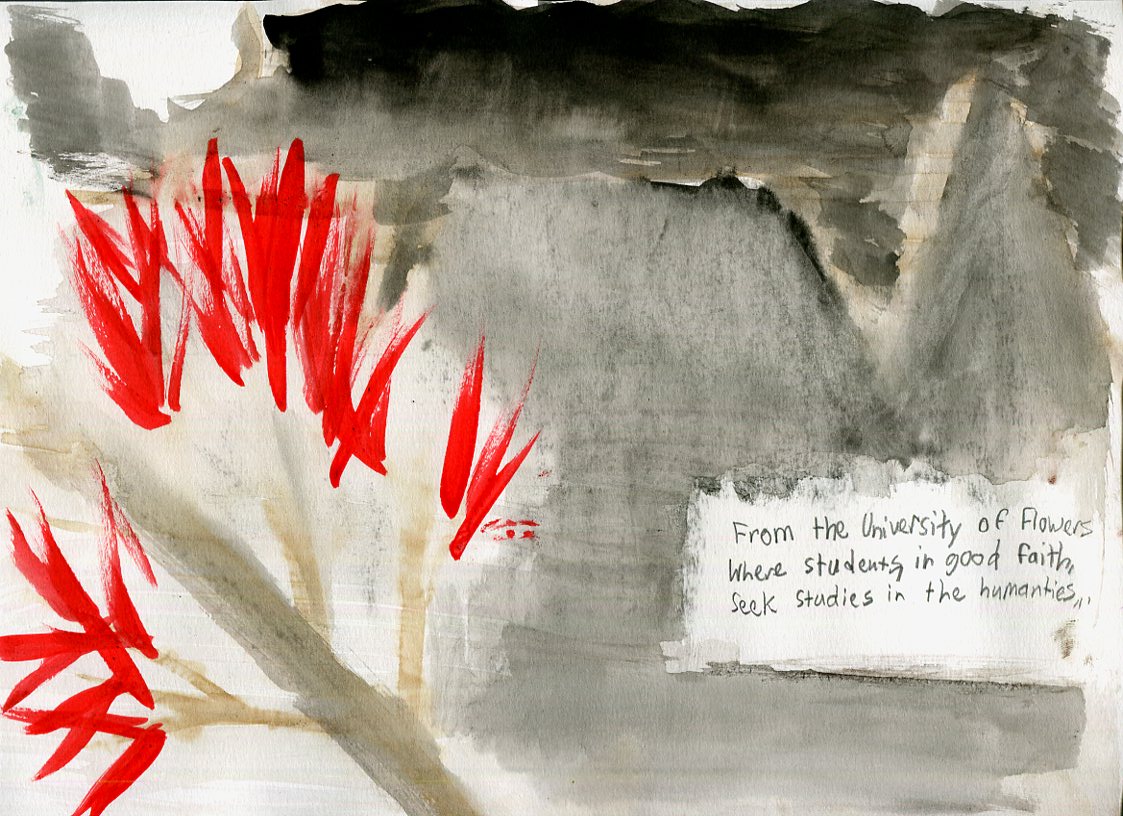 From the University of Flowers
Where students, in good faith,
Seek studies in the humanties,,,